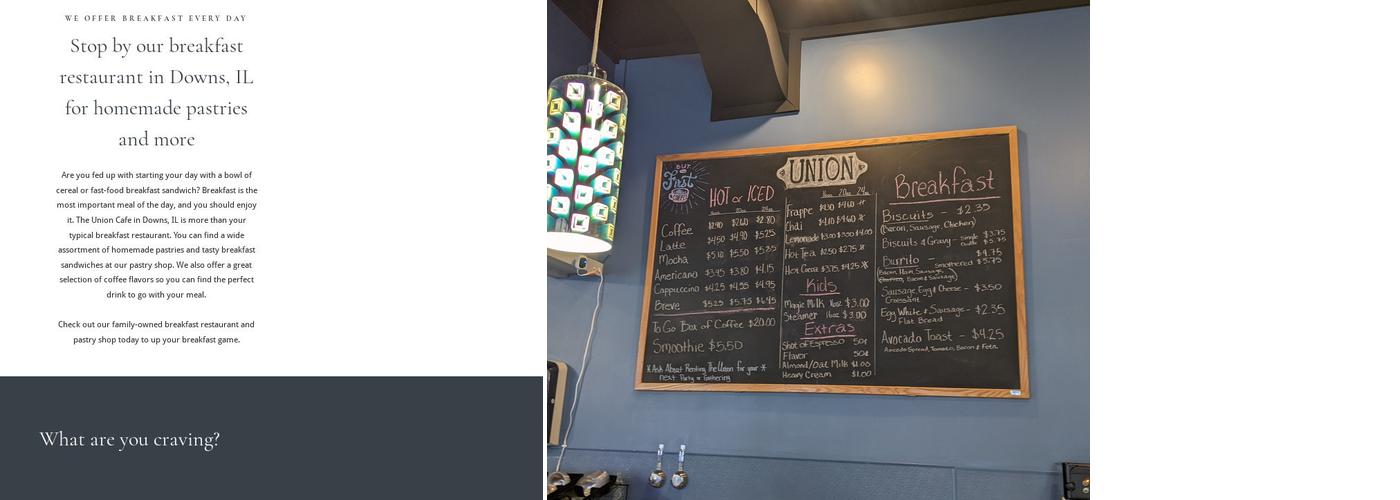 WE OFFER BREAKFAST EVERY DAY
Stop by our breakfast
restaurant in Downs, IL
for homemade pastries
and more
Are you fed up with starting your day with a bowl of
cereal or fast-food breakfast sandwich? Breakfast is the
most important meal of the day, and you should enjoy
it. The Union Cafe in Downs, IL is more than your
typical breakfast restaurant. You can find a wide
assortment of homemade pastries and tasty breakfast
sandwiches at our pastry shop. We also offer a great
selection of coffee flavors so you can find the perfect
drink to go with your meal.
Check out our family-owned breakfast restaurant and
pastry shop today to up your breakfast game.
What are you craving?
UNION
BUT
First
HOT or ICED
16oz 20oz 24oz
Coffee $2.40 $2.60 $2.80
Latte $4.50 $4.90 $5.25
Mocha $5.10 $5.50 $5.85
Americano $3.45 $3.80 $4.15
Cappuccino $4.25 $4.55 $4.95
Breve $5.25 $5.75 $6.45
To Go Box of Coffee $20.00
Smoothie $5.50
* Ask About Renting The Union for your *
next Party or Gathering
16oz 20oz 24oz
Frappe $4.60 **
Chai $4.10 $4.60 *
Lemonade $3.00 $3.50 $4.00
Hot Tea $2.50 $2.75 *
Hot Cocoa $3.75 $4.25 *
Kids
Magic Milk 16oz $3.00
Steamer 16oz $3.00
Extras
Shot of Espresso 50¢
Flavor 50¢
Almond/Oat Milk $1.00
Heavy Cream $1.00
Breakfast
Biscuits - $2.35
(Bacon, Sausage, Chicken)
Biscuits & Gravy - single $3.75
double $5.75
Burrito - $4.75
smothered $5.75
(Bacon, Ham, Sausage,
Bacon & Sausage)
Sausage, Egg & Cheese - $3.50
Croissant
Egg White & Sausage - $2.35
Flat Bread
Avocado Toast - $4.25
Avocado Spread, Tomato, Bacon & Feta